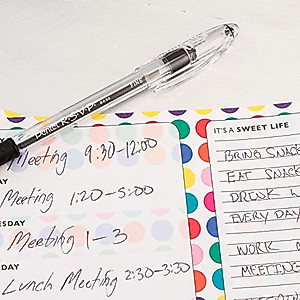 Pentel R.S.V.P. FINE
IT'S A SWEET LIFE
Meeting 9:30-12:00
AY
Meeting 1:20-5:00
ESDAY
Meeting 1-3
DAY
Lunch Meeting 2:30-3:30
BRING SNAC
EAT SNACK
DRINK W
EVERY DAY
WORK
MEETING